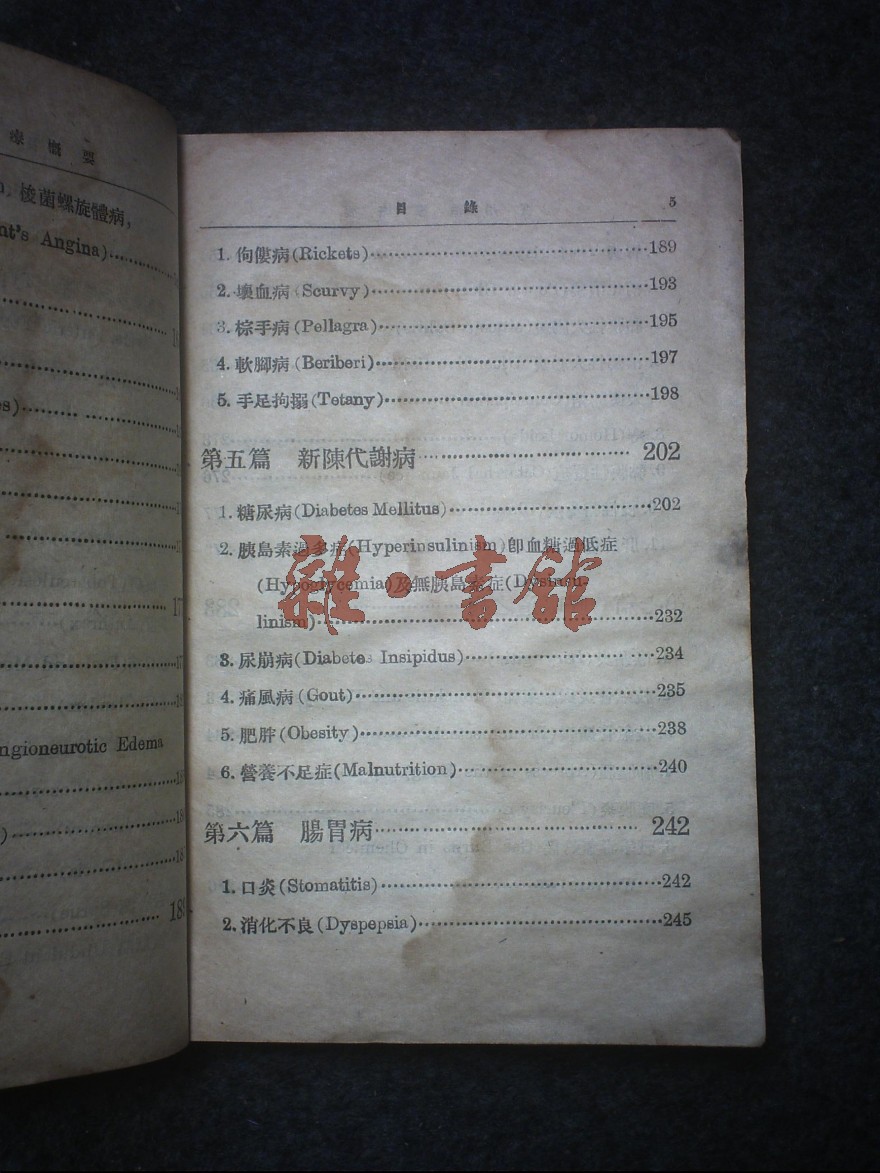 療惟要
梭菌螺旋體病,
nt's Angina)
ngioneurotic Edema
目 錄 5
1. 佝僂病(Rickets)⋯⋯189
2. 壞血病(Scurvy)⋯⋯193
3. 棕手病(Pellagra)⋯⋯195
4. 軟腳病(Beriberi)⋯⋯197
5. 手足拘搦(Tetany)⋯⋯198
第五篇 新陳代謝病⋯⋯202
1. 糖尿病(Diabetes Mellitus)⋯⋯202
2. 胰島素過多症(Hyperinsulinism)卽血糖過低症
(Hypoglycemia)及無胰島素症(Dysinsu-
linism)⋯⋯232
3. 尿崩病(Diabetes Insipidus)⋯⋯234
4. 痛風病(Gout)⋯⋯235
5. 肥胖(Obesity)⋯⋯238
6. 營養不足症(Malnutrition)⋯⋯240
第六篇 腸胃病⋯⋯242
1. 口炎(Stomatitis)⋯⋯242
2. 消化不良(Dyspepsia)⋯⋯245
雜·書館